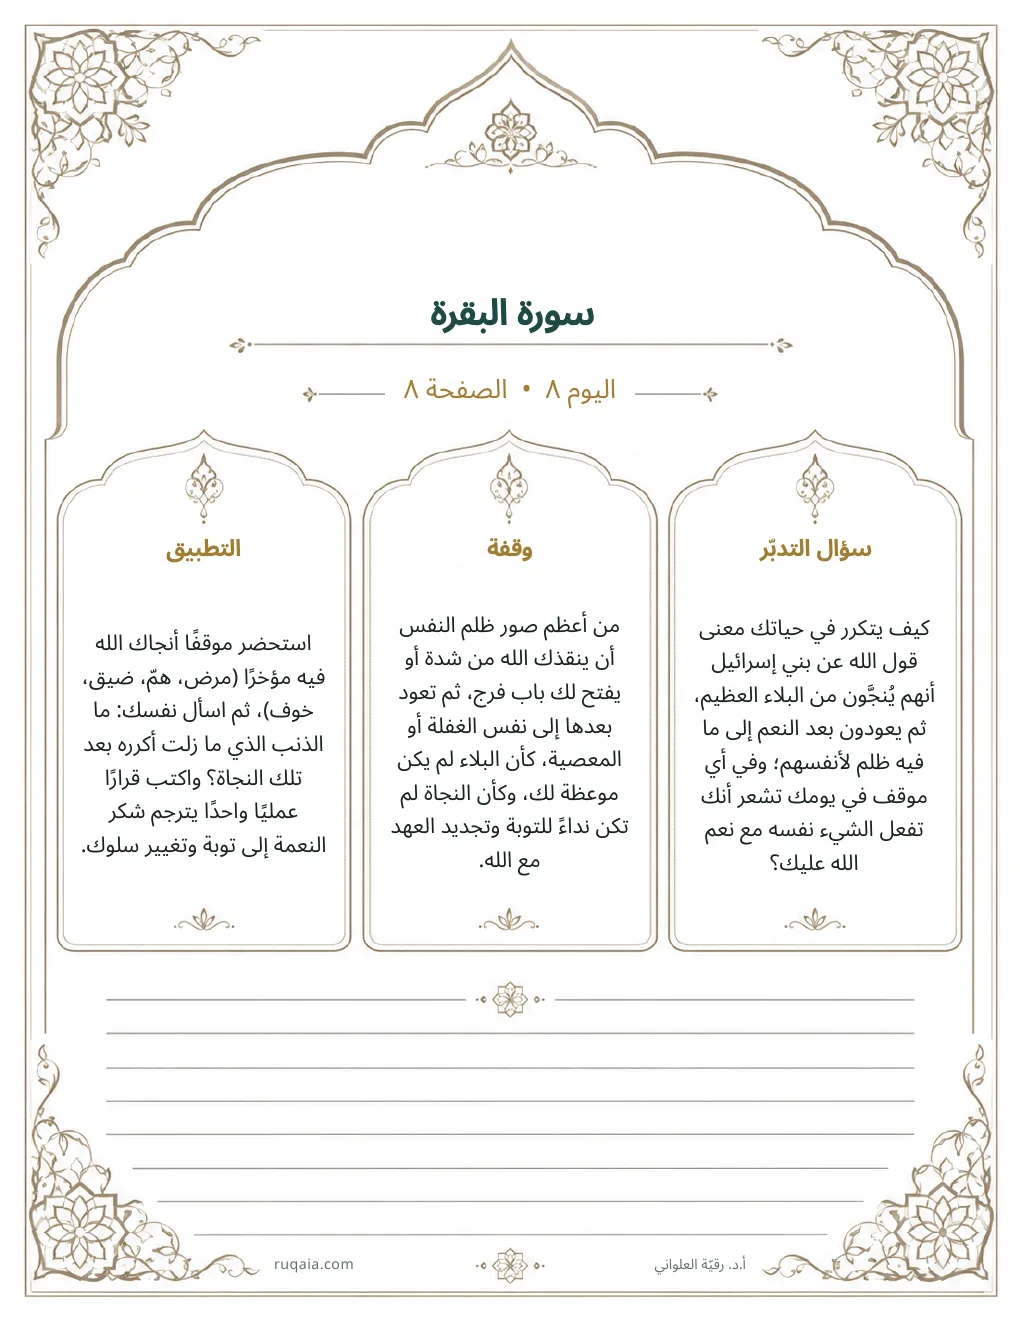 سورة البقرة
اليوم ٨ • الصفحة ٨
سؤال التدبّر
كيف يتكرر في حياتك معنى
قول الله عن بني إسرائيل
أنهم يُنجَّون من البلاء العظيم،
ثم يعودون بعد النعم إلى ما
فيه ظلم لأنفسهم؛ وفي أي
موقف في يومك تشعر أنك
تفعل الشيء نفسه مع نعم
الله عليك؟
وقفة
من أعظم صور ظلم النفس
أن ينقذك الله من شدة أو
يفتح لك باب فرج، ثم تعود
بعدها إلى نفس الغفلة أو
المعصية، كأن البلاء لم يكن
موعظة لك، وكأن النجاة لم
تكن نداءً للتوبة وتجديد العهد
مع الله.
التطبيق
استحضر موقفًا أنجاك الله
فيه مؤخرًا (مرض، همّ، ضيق،
خوف)، ثم اسأل نفسك: ما
الذنب الذي ما زلت أكرره بعد
تلك النجاة؟ واكتب قرارًا
عمليًا واحدًا يترجم شكر
النعمة إلى توبة وتغيير سلوك.
أ.د. رقيّة العلواني
ruqaia.com